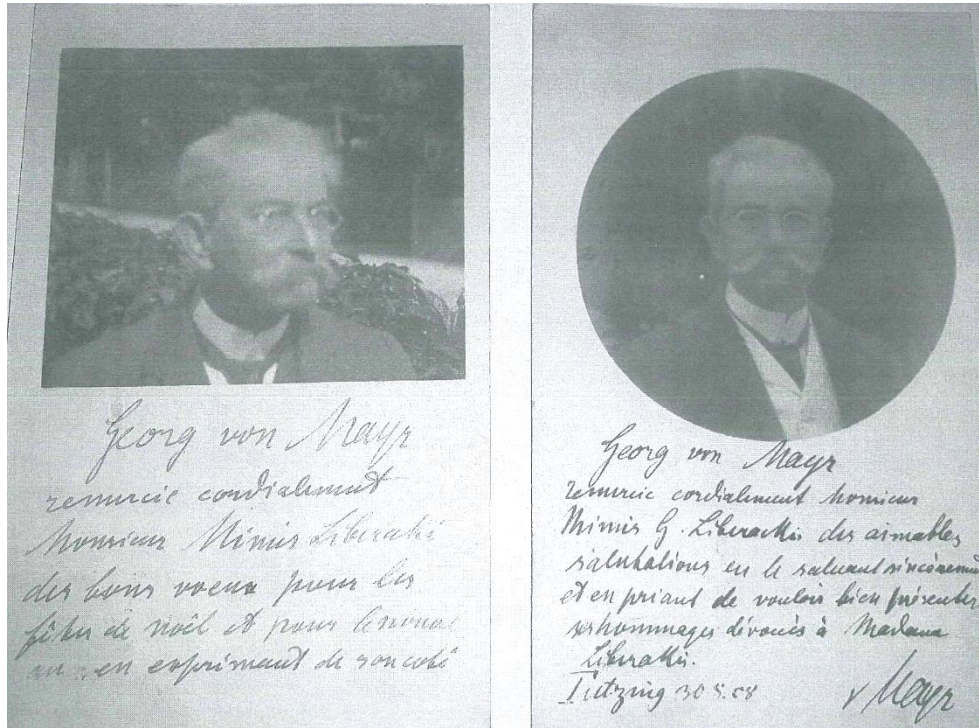 Georg von Mayr
remercie cordialement
Monsieur Mimis Liberakis
des bons voeux pour les
fêtes de noël et pour le nouvel
an, en exprimant de son coté
Georg von Mayr
remercie cordialement Monsieur
Mimis G. Liberakis des aimables
salutations en le saluant sincèrement
et en priant de vouloir bien présenter
ses hommages dévoués à Madame
Liberakis.
Tutzing 30.8.08
v Mayr